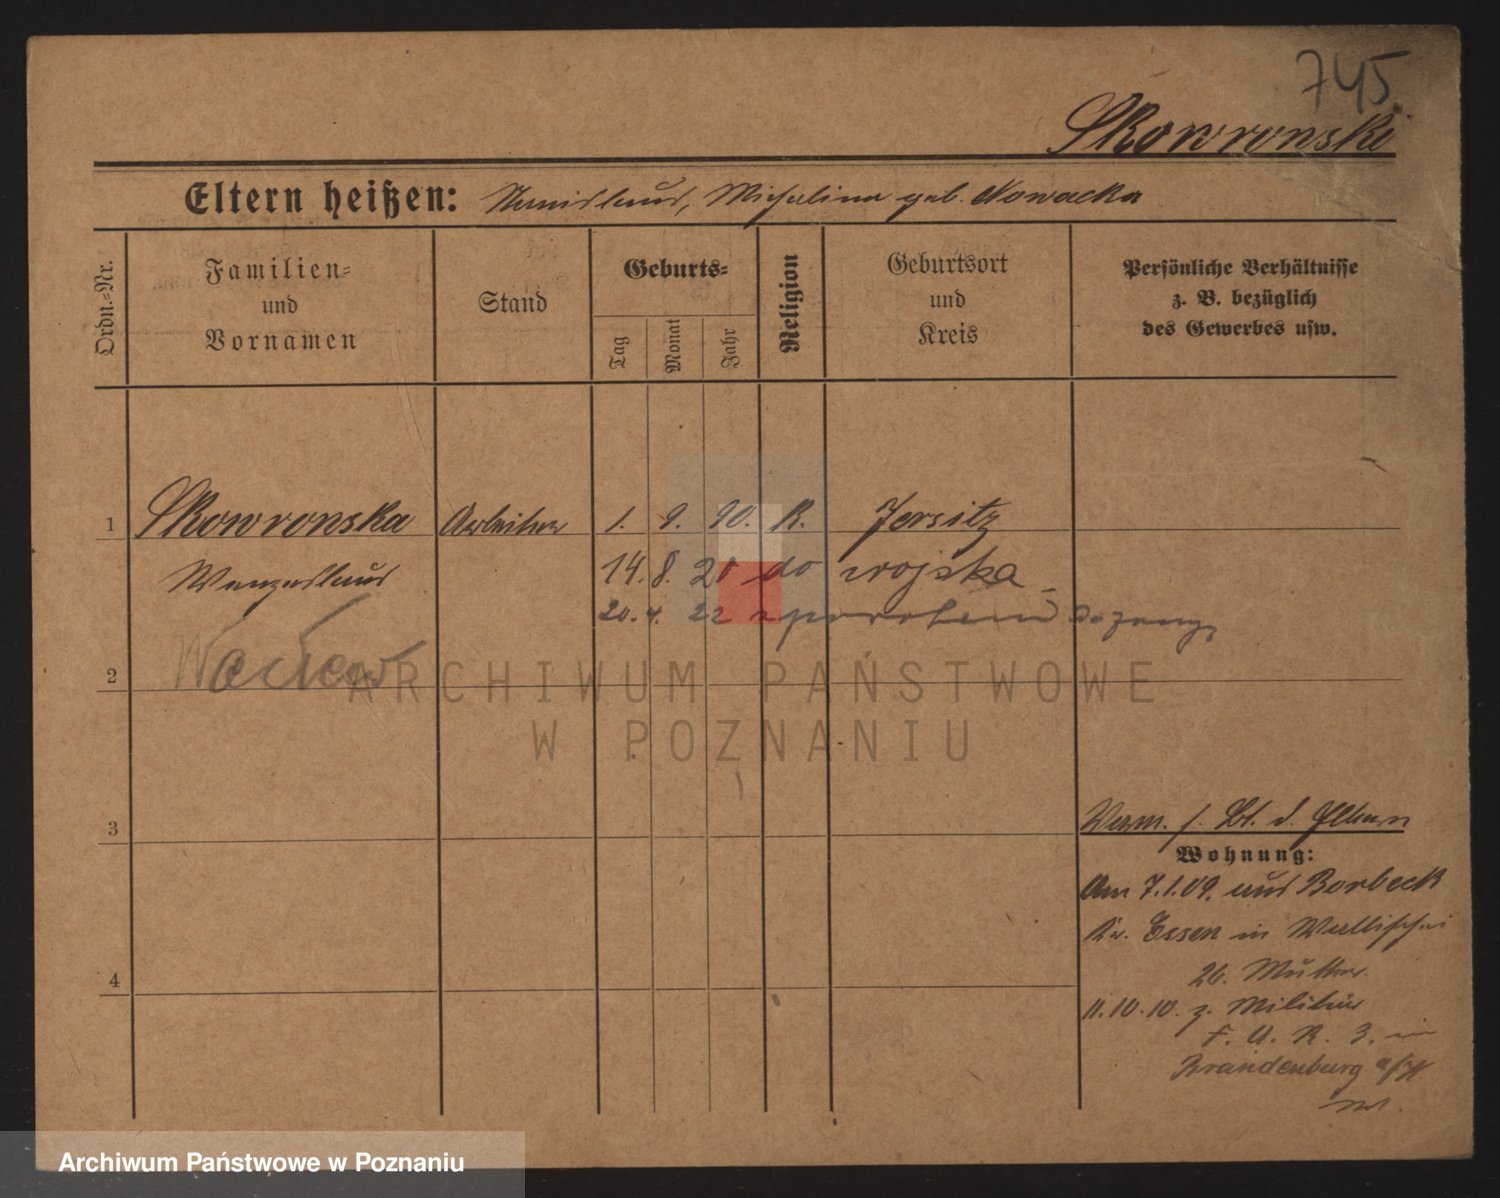 745
Skowronski
Eltern heißen: Stanislaus, Michalina geb. Nowacka
Ordn.=Nr.
Familien=
und
Vornamen
Stand
Geburts=
Tag
Monat
Jahr
Religion
Geburtsort
und
Kreis
Persönliche Verhältnisse
z. B. bezüglich
des Gewerbes usw.
1 Skowronska Arbeiter 1. 9. 90. K. Jersitz
Wenzeslaus 14. 8. 20 do wojska
20. 4. 22 z powrotem
Wacław
2
ARCHIWUM PAŃSTWOWE
W POZNANIU
3
Verm. s. Bl. d. Eltern
Wohnung:
Am 7.1.09. aus Borbeck
Kr. Essen in Wallischei
26. Mutter
4
11.10.10. z. Militär
F. A. R. 3. in
Brandenburg a/H.
Archiwum Państwowe w Poznaniu